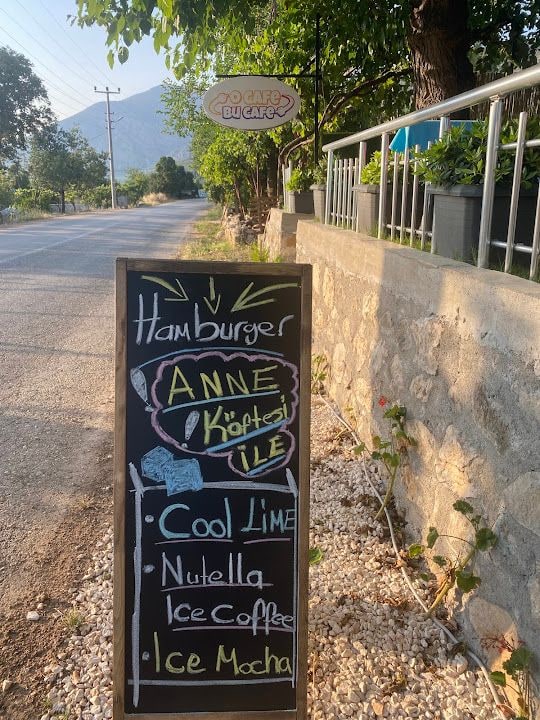 O CAFE
BU CAFE
Hamburger
ANNE
Köftesi
İLE
Cool LİME
Nutella
Ice Coffee
Ice Mocha